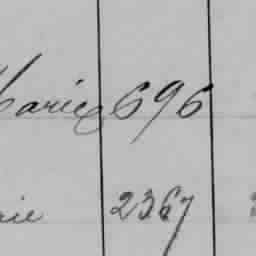 Marie 696
rie 2367